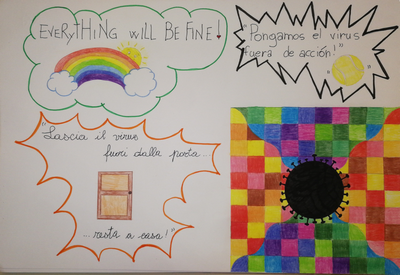 EVERYTHING WILL BE FINE!
"Pongamos el virus
fuera de acción!"
"Lascia il virus
fuori dalla porta...
...resta a casa!"